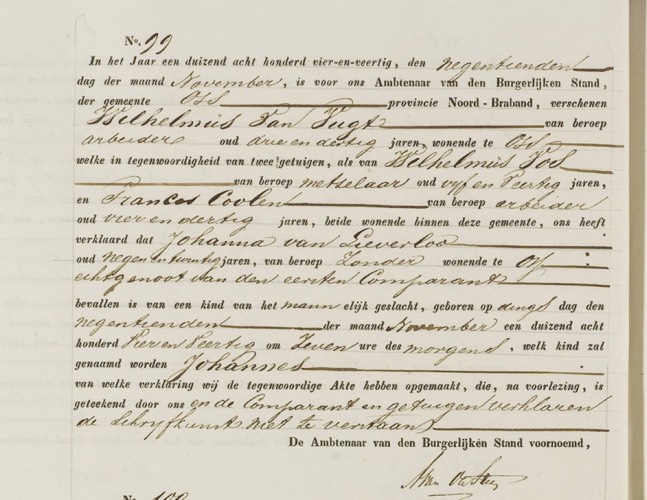 No. 99
In het Jaar een duizend acht honderd vier-en-veertig, den negentienden
dag der maand November, is voor ons Ambtenaar van den Burgerlijken Stand,
der gemeente Oss provincie Noord-Braband, verschenen
Wilhelmus van Vugt van beroep
arbeider oud drie en dertig jaren, wonende te Oss
welke in tegenwoordigheid van twee getuigen, als van Wilhelmus Vos
van beroep metselaar oud vijf en Veertig jaren,
en Francis Coolen van beroep arbeider
oud vier en dertig jaren, beide wonende binnen deze gemeente, ons heeft
verklaard dat Johanna van Lieverloo
oud negen en twintig jaren, van beroep Zonder wonende te Oss
echtgenoot van den eersten Comparant
bevallen is van een kind van het mann elijk geslacht, geboren op dings dag den
negentienden der maand November een duizend acht
honderd Vier en Veertig om Zeven ure des morgens, welk kind zal
genaamd worden Johannes
van welke verklaring wij de tegenwoordige Akte hebben opgemaakt, die, na voorlezing, is
geteekend door ons en de Comparant en getuigen verklaren
de Schryfkunst niet te verstaan
De Ambtenaar van den Burgerlijken Stand voornoemd,
No. 100